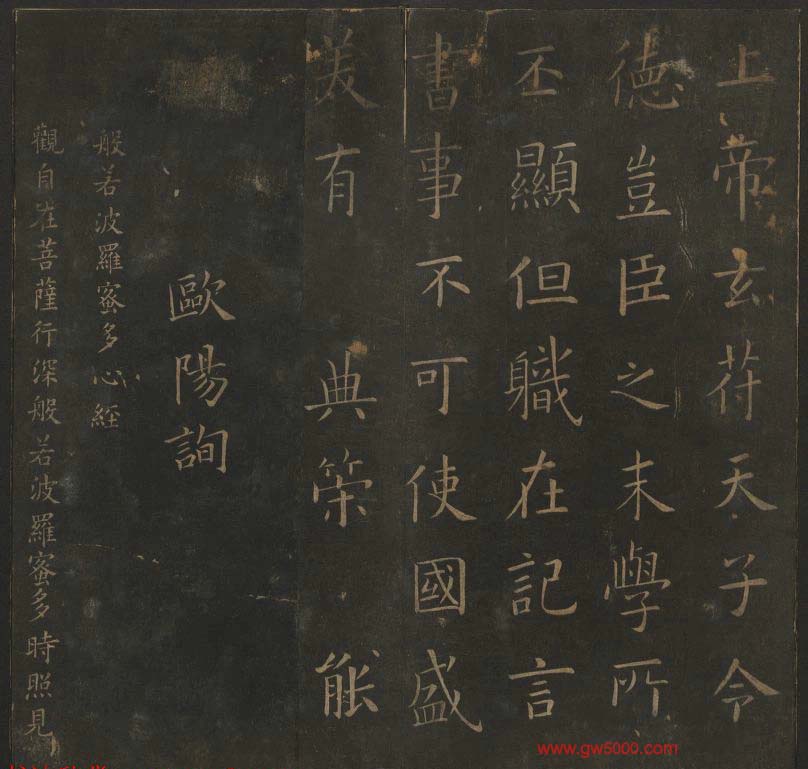 上帝玄苻天子令
德豈臣之末學所
丕顯但職在記言
書事不可使國盛
美有典策能
歐陽詢
般若波羅蜜多心經
觀自在菩薩行深般若波羅蜜多時照見
www.gw5000.com